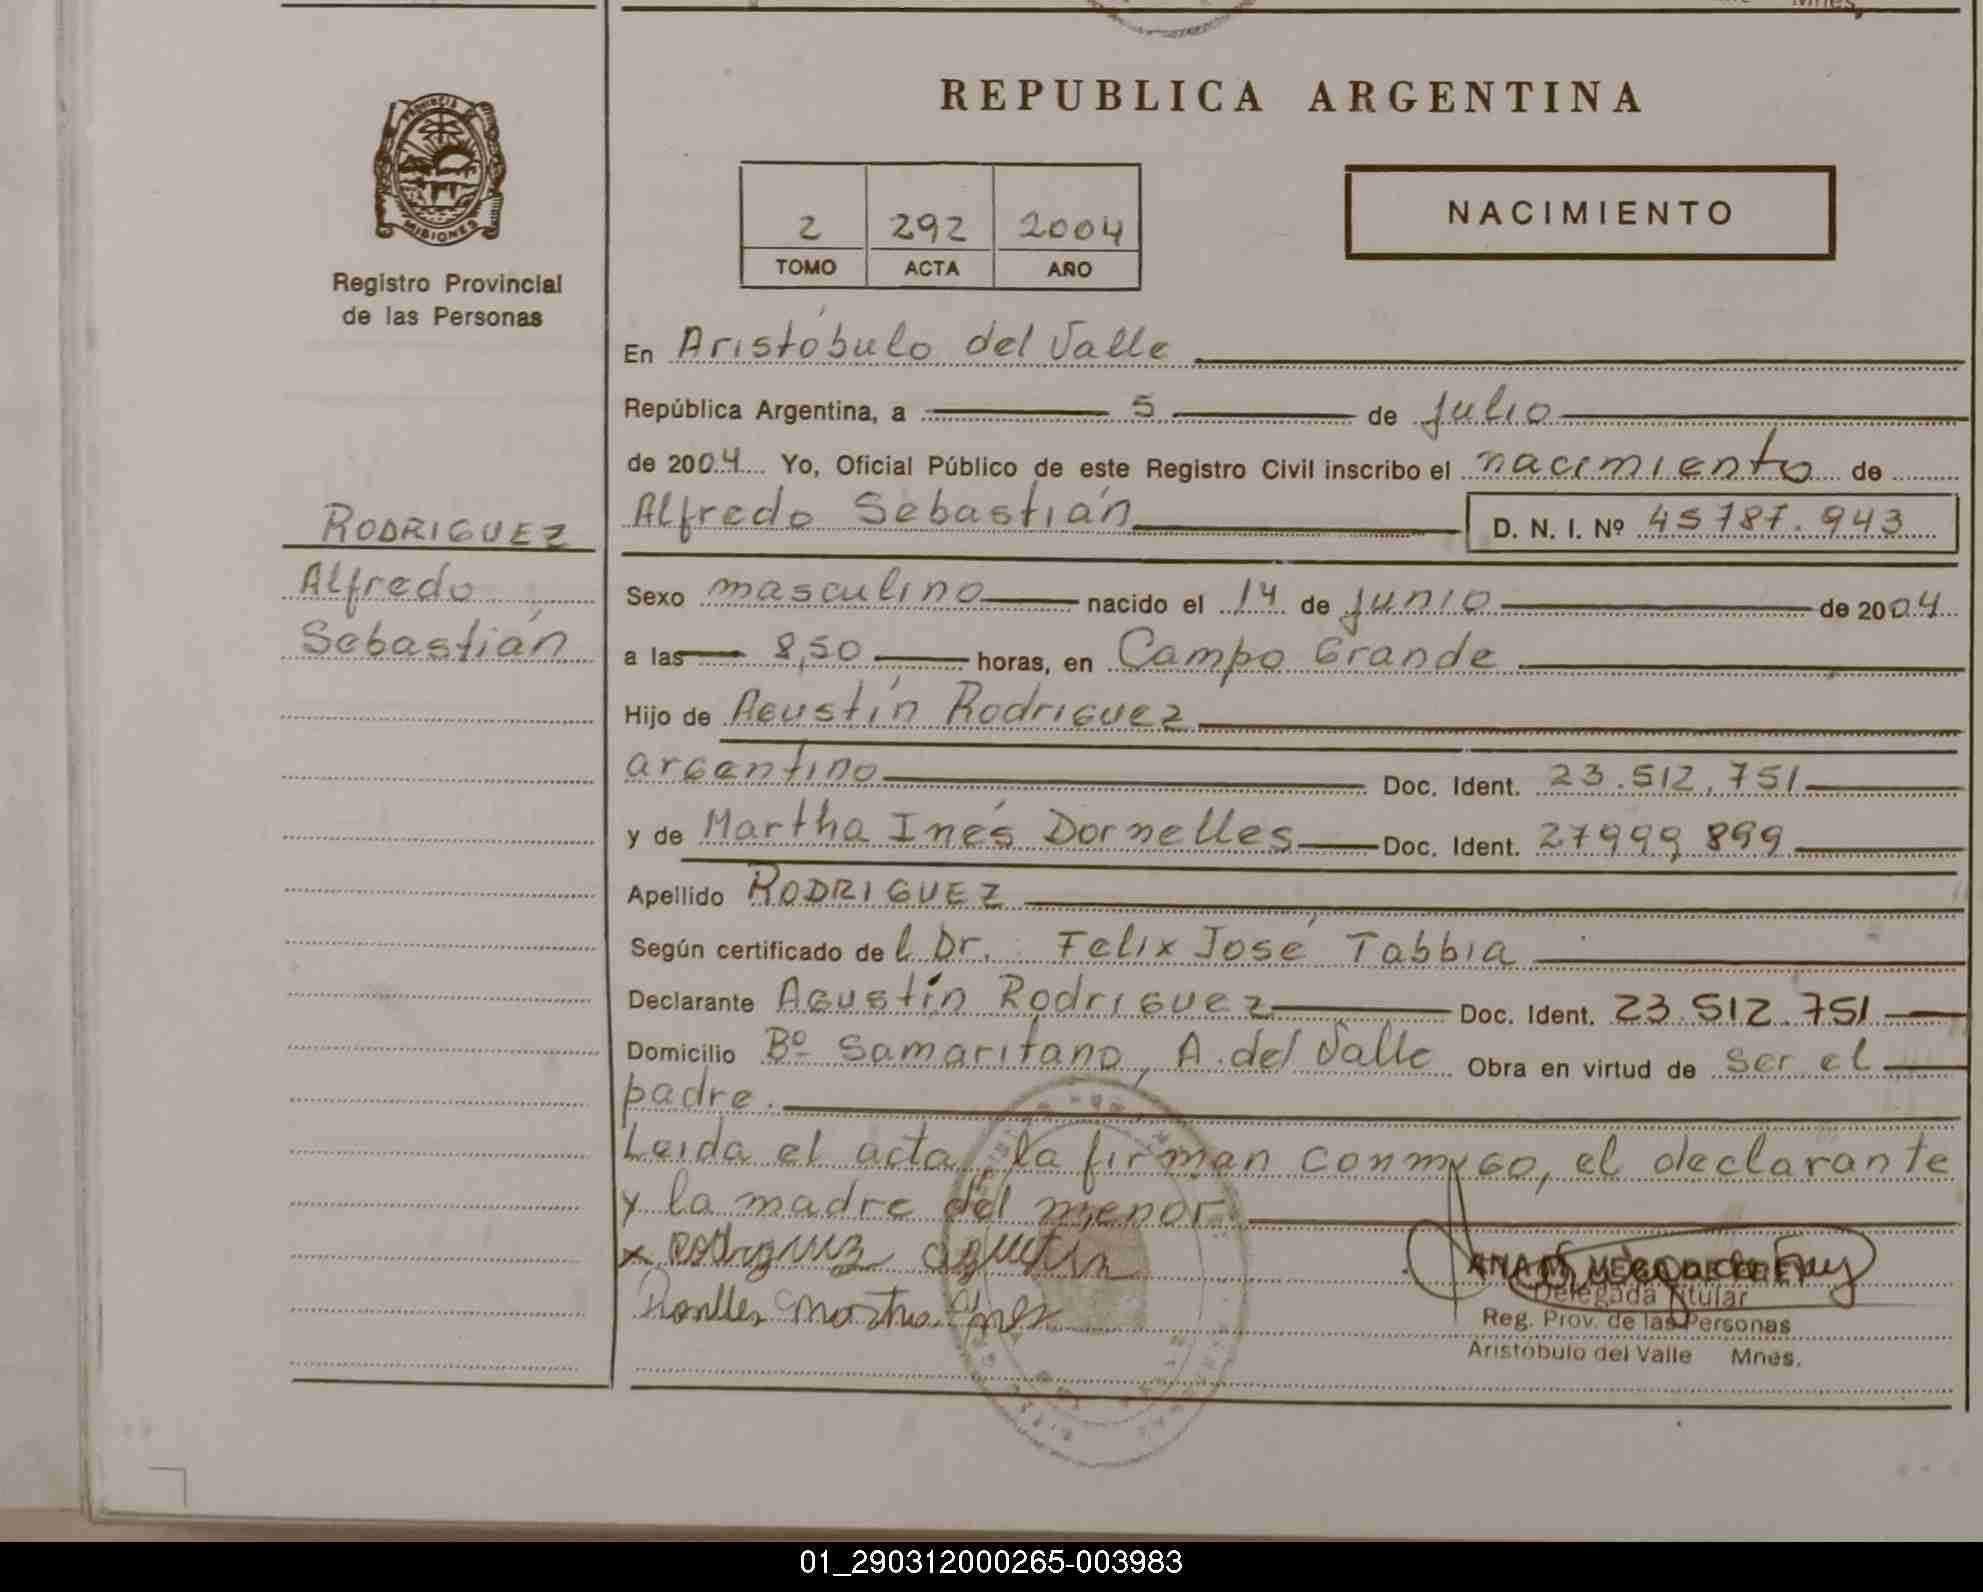 Mnes,
REPUBLICA ARGENTINA
PROVINCIA DE
MISIONES
Registro Provincial
de las Personas
2 292 2004
TOMO ACTA AÑO
NACIMIENTO
En Aristóbulo del Valle
República Argentina, a 5 de Julio
de 2004 Yo, Oficial Público de este Registro Civil inscribo el nacimiento de
Alfredo Sebastián D. N. I. Nº 45787.943
RODRIGUEZ
Alfredo
Sebastián
Sexo masculino nacido el 14 de junio de 2004
a las 8,50 horas, en Campo Grande
Hijo de Agustín Rodriguez
argentino Doc. Ident. 23.512.751
y de Martha Inés Dornelles Doc. Ident. 27999 899
Apellido RODRIGUEZ
Según certificado de l Dr. Felix José Tabbia
Declarante Agustín Rodriguez Doc. Ident. 23.512.751
Domicilio Bº Samaritano, A. del Valle Obra en virtud de ser el
padre.
Leida el acta, la firman conmigo, el declarante
y la madre del menor.
x Rodriguez agustin
Martha Ines
Delegada Titular
Reg. Prov. de las Personas
Aristóbulo del Valle Mnes.
01_290312000265-003983